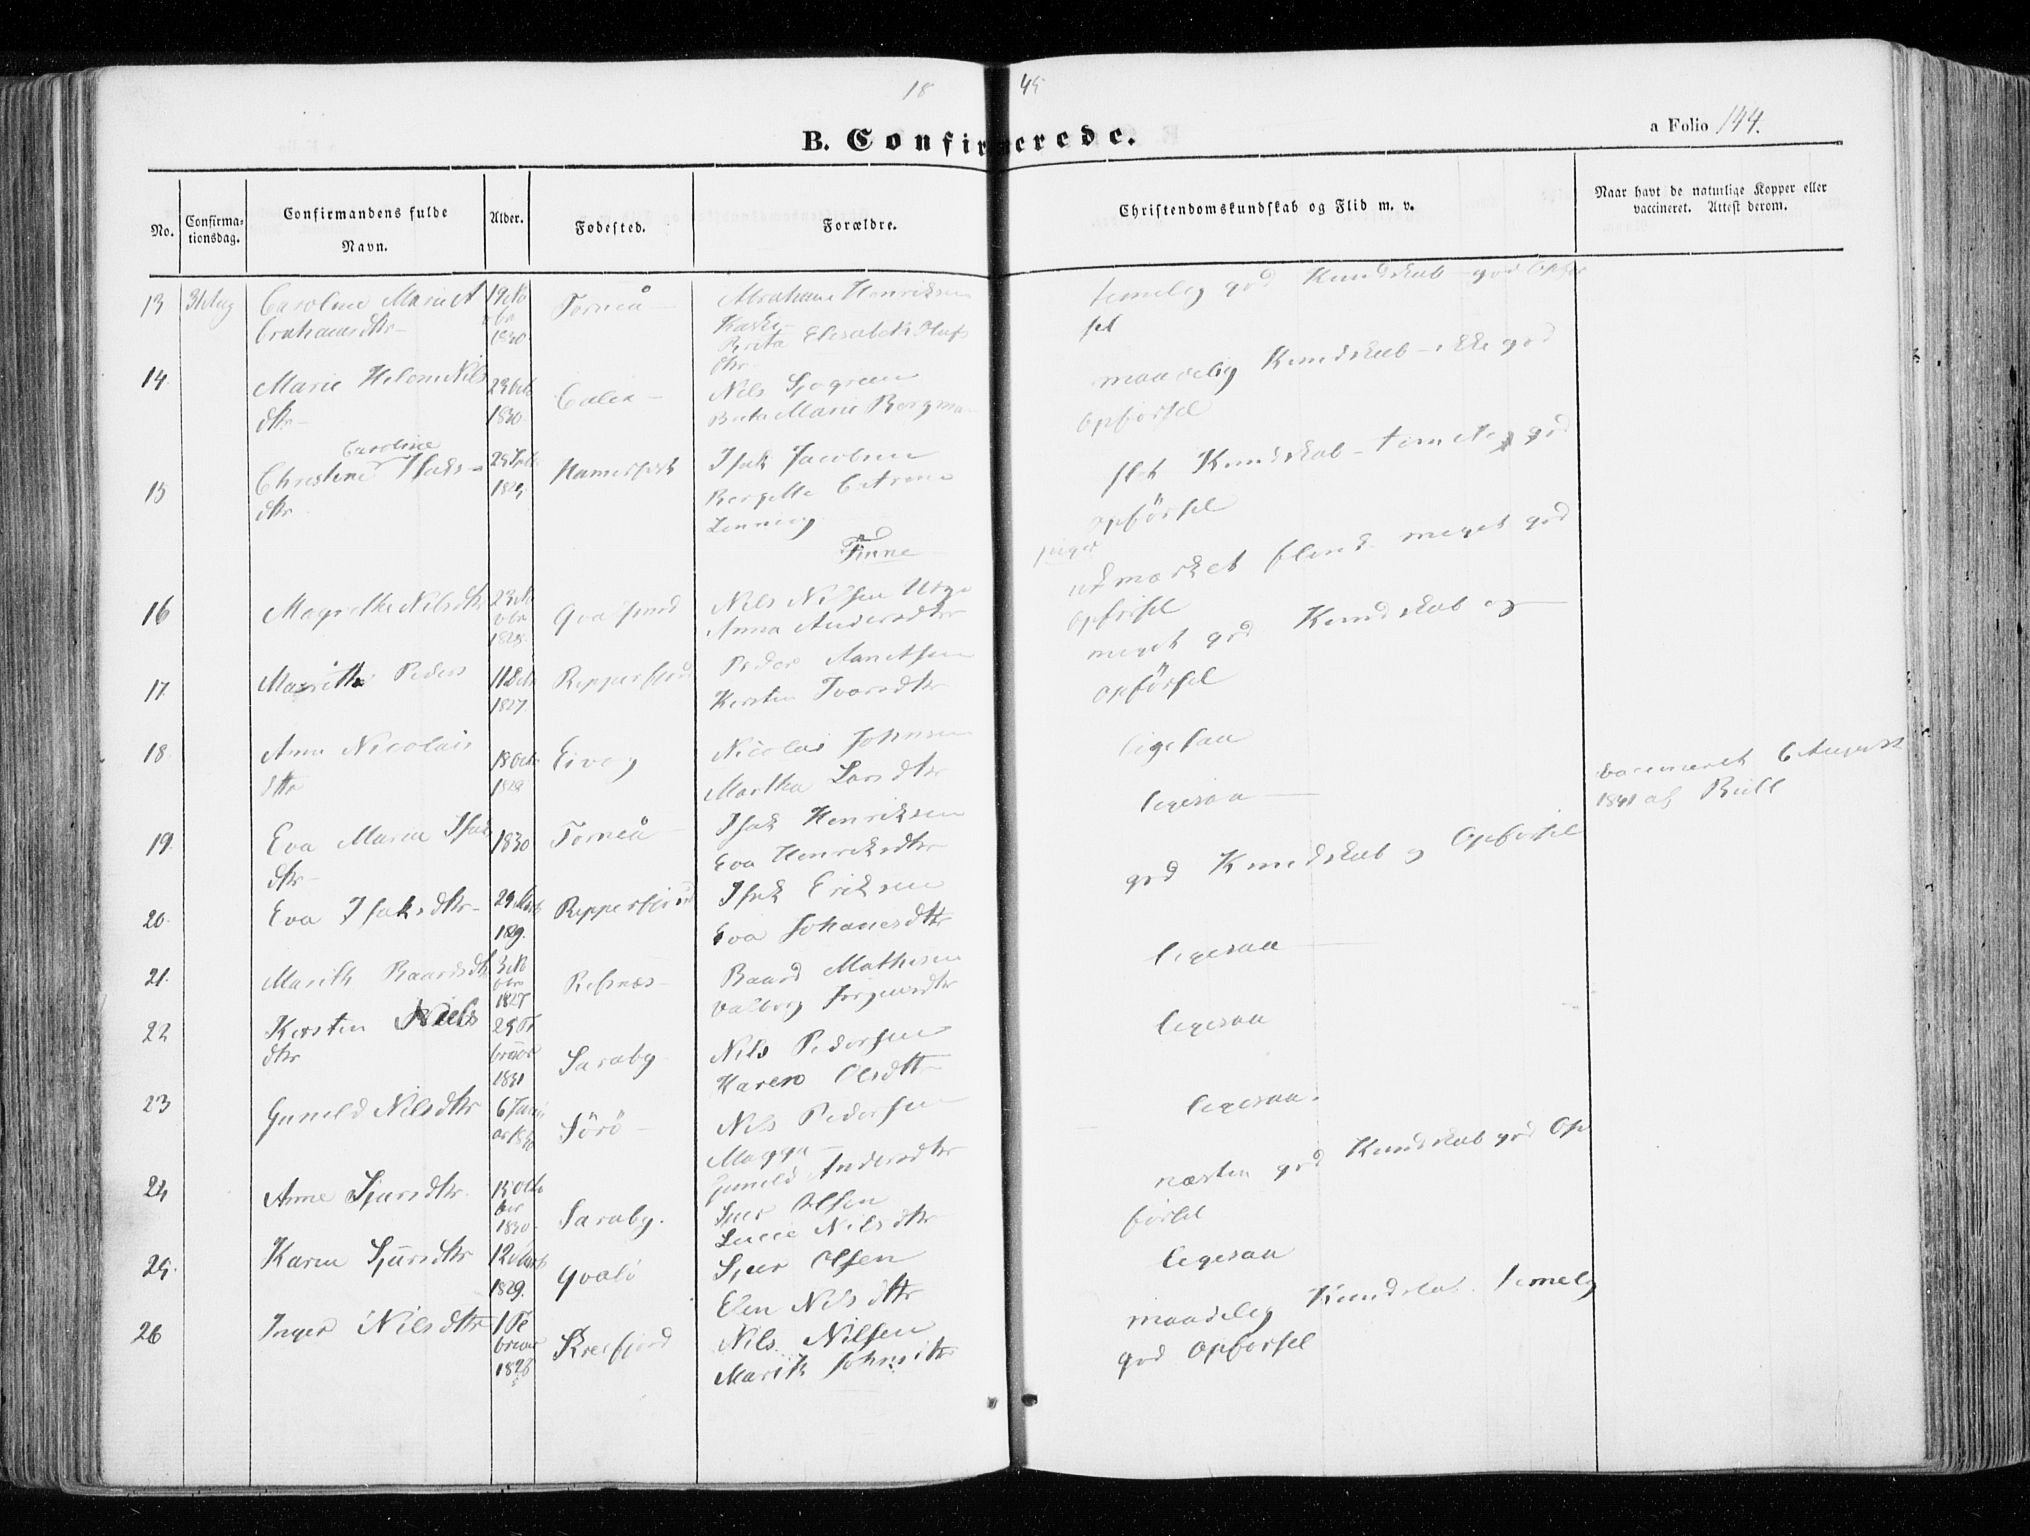 18 45
B. Confirmerede.
a Folio 144.
No.
Confirma-
tionsdag.
Confirmandens fulde
Navn.
Alder.
Fødested.
Forældre.
Christendomskundskab og Flid m. v.
Naar havt de naturlige Kopper eller
vaccineret. Attest derom.
13 31 Aug Caroline Marie A
brahamsdtr 1830 Torneå Abraham Henriksen
Brita Elisabeth Olufs
dtr
temelig god Kundskab god Opfør
sel
14. Marie Helene Nils
dtr 1830 Calix Nils Sjøgreen
Brita Marie Bergman
maadelig Kundskab ikke god
Opførsel
15 Caroline
Christine Isaks
dtr 1829 Hamerfest Isak Jacobsen
Bergitte Catrine
slet Kundskab temelig god
opförsel
Finne
piger
16 Magrethe Nilsdtr Qvalsund Nils Nilsen
Anna Andersdtr
udmærket flink meget god
opførsel
17. Marith Peders 11 Octr 1827 Repperfjord Peder
Kersten Ivarsdtr
meget god Kundskab og
opförsel
18. Anna Nicolais
dtr 18 Octr Eivog Nicolai Johnsen
Martha Larsdtr
ligesaa
19. Eva Maria Isak
dtr 1830 Torneå Isak Henriksen
Eva Henriksdtr
ligesaa
vaccineret 6 August
1841 af Bull
20. Eva Isaksdtr 1829. Repperfjord Isak Eriksen
Eva Johanesdtr
god Kundskab og Opførsel
21. Marith Baardsdtr 1827 Refsnæs Baard Mathisen
Valborg Jørgensdtr
ligesaa
22 Kersten Niels
dtr 1831 Saraby Nils Pedersen
Karen Olsdtr
ligesaa
23 Gunild Nilsdtr 6 Janu
ar 1830 Sörö Nils Pedersen
Magga
Gunild Andersdtr
ligesaa.
24 Anne Sjursdtr. 13 Octo
ber 1830 Saraby. Sjur Olsen
Lucie Nilsdtr
næsten god Kundskab god Op
førsel
25. Karen Sjursdtr 12 Marts
1829. Qvalö Sjur Olsen
Elen Nilsdtr
ligesaa
26 Inger Nilsdtr 1 Fe
bruar
1828 Nils Nilsen
Marith
maadelig temelig
god Opførsel